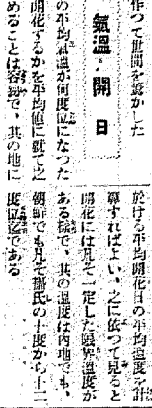 作つて世間を驚かした
氣溫・開日
の平均氣溫が何度位になつた
開花するかを平均値に就て之
めることは容易で、其の地に
於ける平均開花日の平均溫度を計
算すればよい、之に依つて見ると
開花には凡そ一定した限界溫度が
ある樣で、其の溫度は內地でも、
朝鮮でも凡そ攝氏の十度から十二
度位迄である